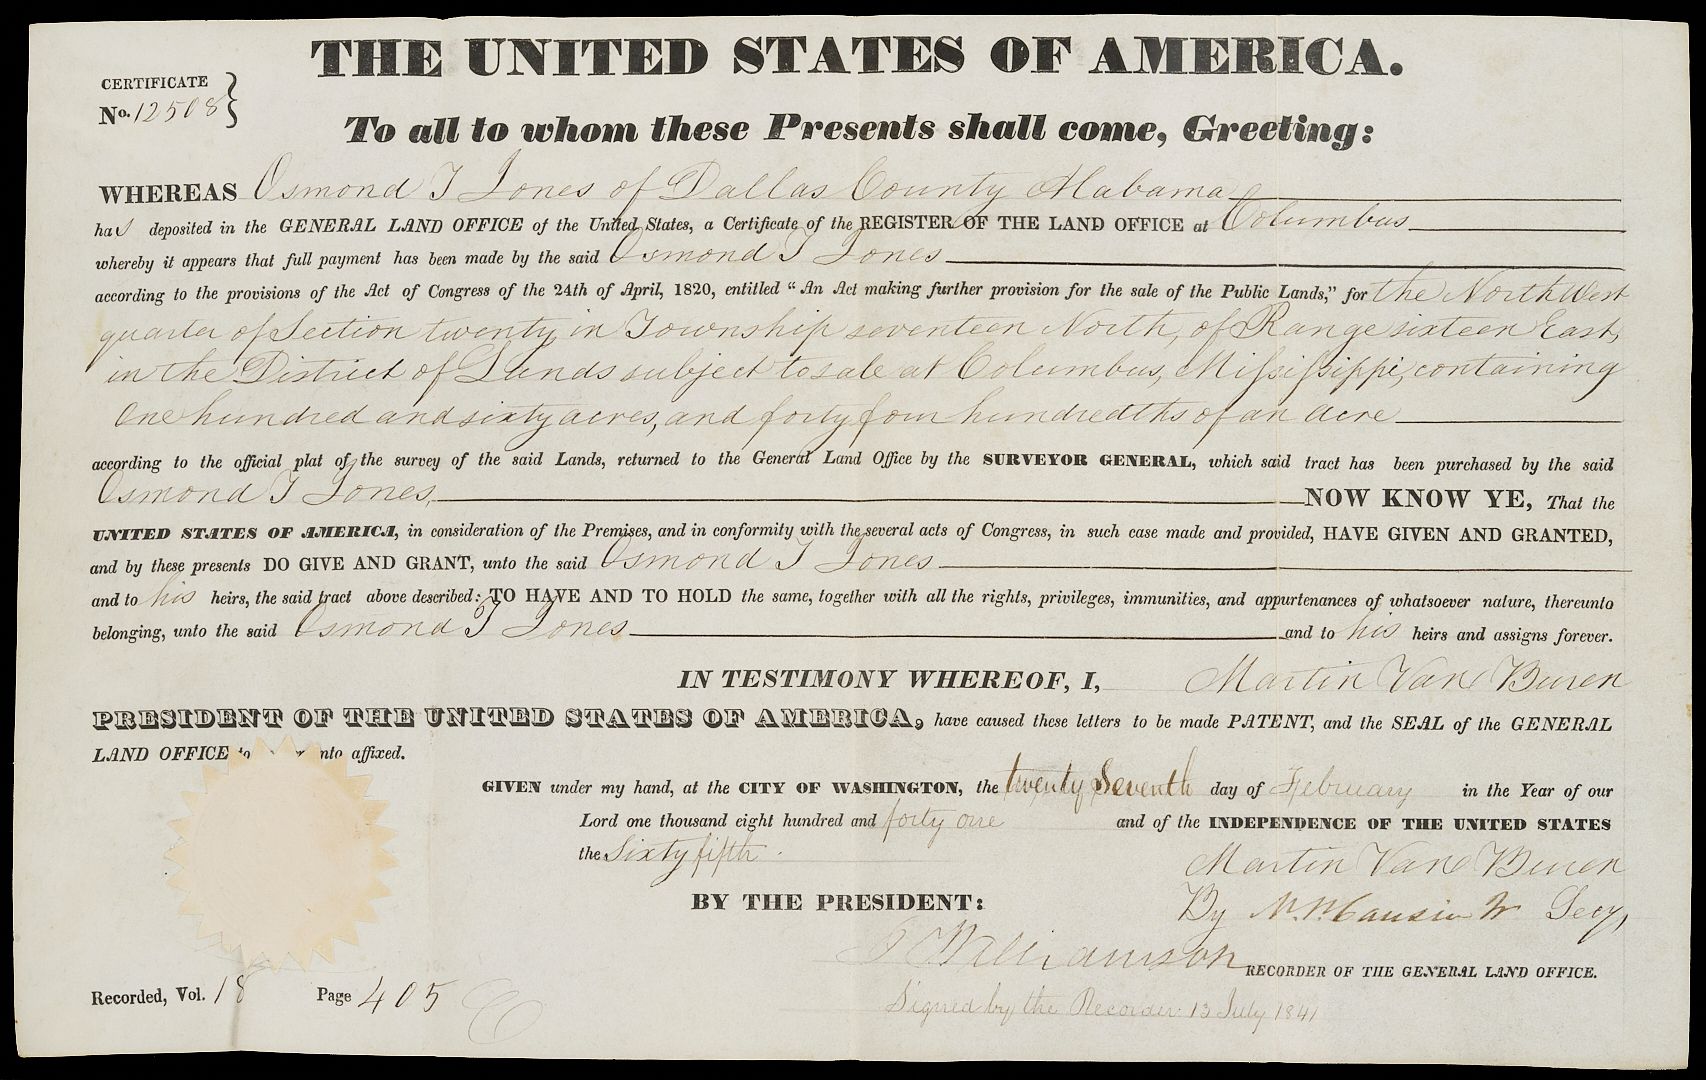 THE UNITED STATES OF AMERICA.
CERTIFICATE
No. 12508
To all to whom these Presents shall come, Greeting:
WHEREAS Osmond T Jones of Dallas County Alabama
has deposited in the GENERAL LAND OFFICE of the United States, a Certificate of the REGISTER OF THE LAND OFFICE at Columbus
whereby it appears that full payment has been made by the said Osmond T Jones
according to the provisions of the Act of Congress of the 24th of April, 1820, entitled “An Act making further provision for the sale of the Public Lands,” for the North West
quarter of Section twenty, in Township seventeen North, of Range sixteen East,
in the District of Lands subject to sale at Columbus, Mississippi, containing
One hundred and sixty acres, and forty four hundredths of an acre
according to the official plat of the survey of the said Lands, returned to the General Land Office by the SURVEYOR GENERAL, which said tract has been purchased by the said
Osmond T Jones, NOW KNOW YE, That the
UNITED STATES OF AMERICA, in consideration of the Premises, and in conformity with the several acts of Congress, in such case made and provided, HAVE GIVEN AND GRANTED,
and by these presents DO GIVE AND GRANT, unto the said Osmond T Jones
and to his heirs, the said tract above described: TO HAVE AND TO HOLD the same, together with all the rights, privileges, immunities, and appurtenances of whatsoever nature, thereunto
belonging, unto the said Osmond T Jones and to his heirs and assigns forever.
IN TESTIMONY WHEREOF, I, Martin Van Buren
PRESIDENT OF THE UNITED STATES OF AMERICA, have caused these letters to be made PATENT, and the SEAL of the GENERAL
LAND OFFICE to nto affixed.
GIVEN under my hand, at the CITY OF WASHINGTON, the twenty Seventh day of February in the Year of our
Lord one thousand eight hundred and forty one and of the INDEPENDENCE OF THE UNITED STATES
the Sixty fifth.
Martin Van Buren
BY THE PRESIDENT:
By Jr Secy,
Williamson RECORDER OF THE GENERAL LAND OFFICE.
Recorded, Vol. 18 Page 405
Signed by the Recorder 13 July 1841